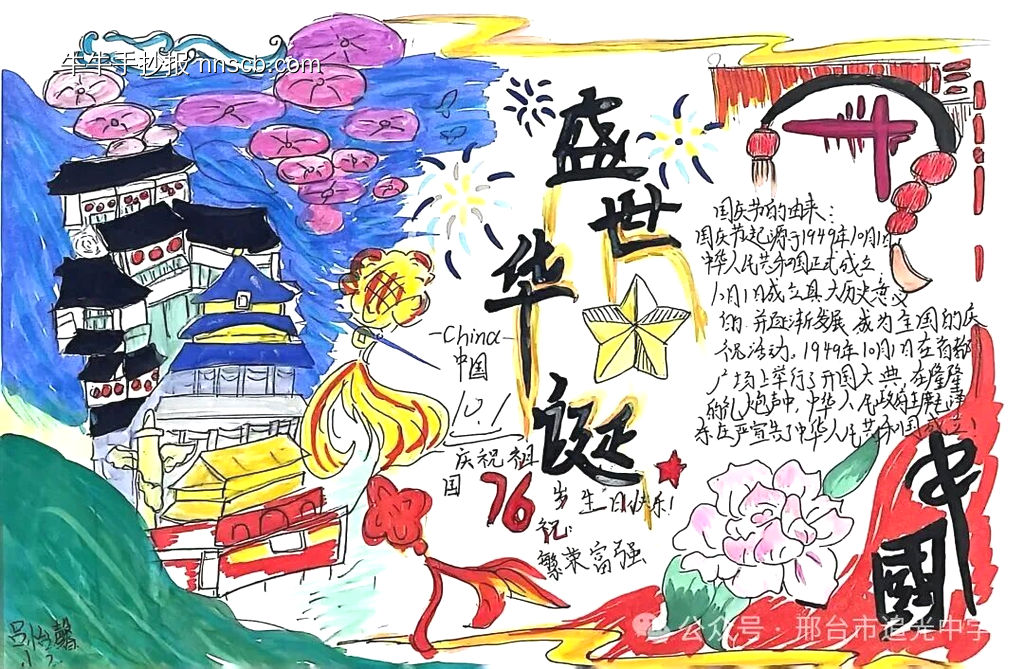 牛牛手抄报 nnscb.com
盛世
华诞
国庆节的由来：
国庆节起源于1949年10月1日
中华人民共和国正式成立
10月1日成立具大历史意义
的，并逐渐发展成为全国的庆
祝活动。1949年10月1日在首都
广场上举行了开国大典，在隆隆
的礼炮声中，中华人民政府主席毛泽
东庄严宣告了中华人民共和国成立！
-China-
中国
10.1
庆祝祖
国76岁生日快乐！
祝：
繁荣富强
中國
公众号·邢台市追光中学